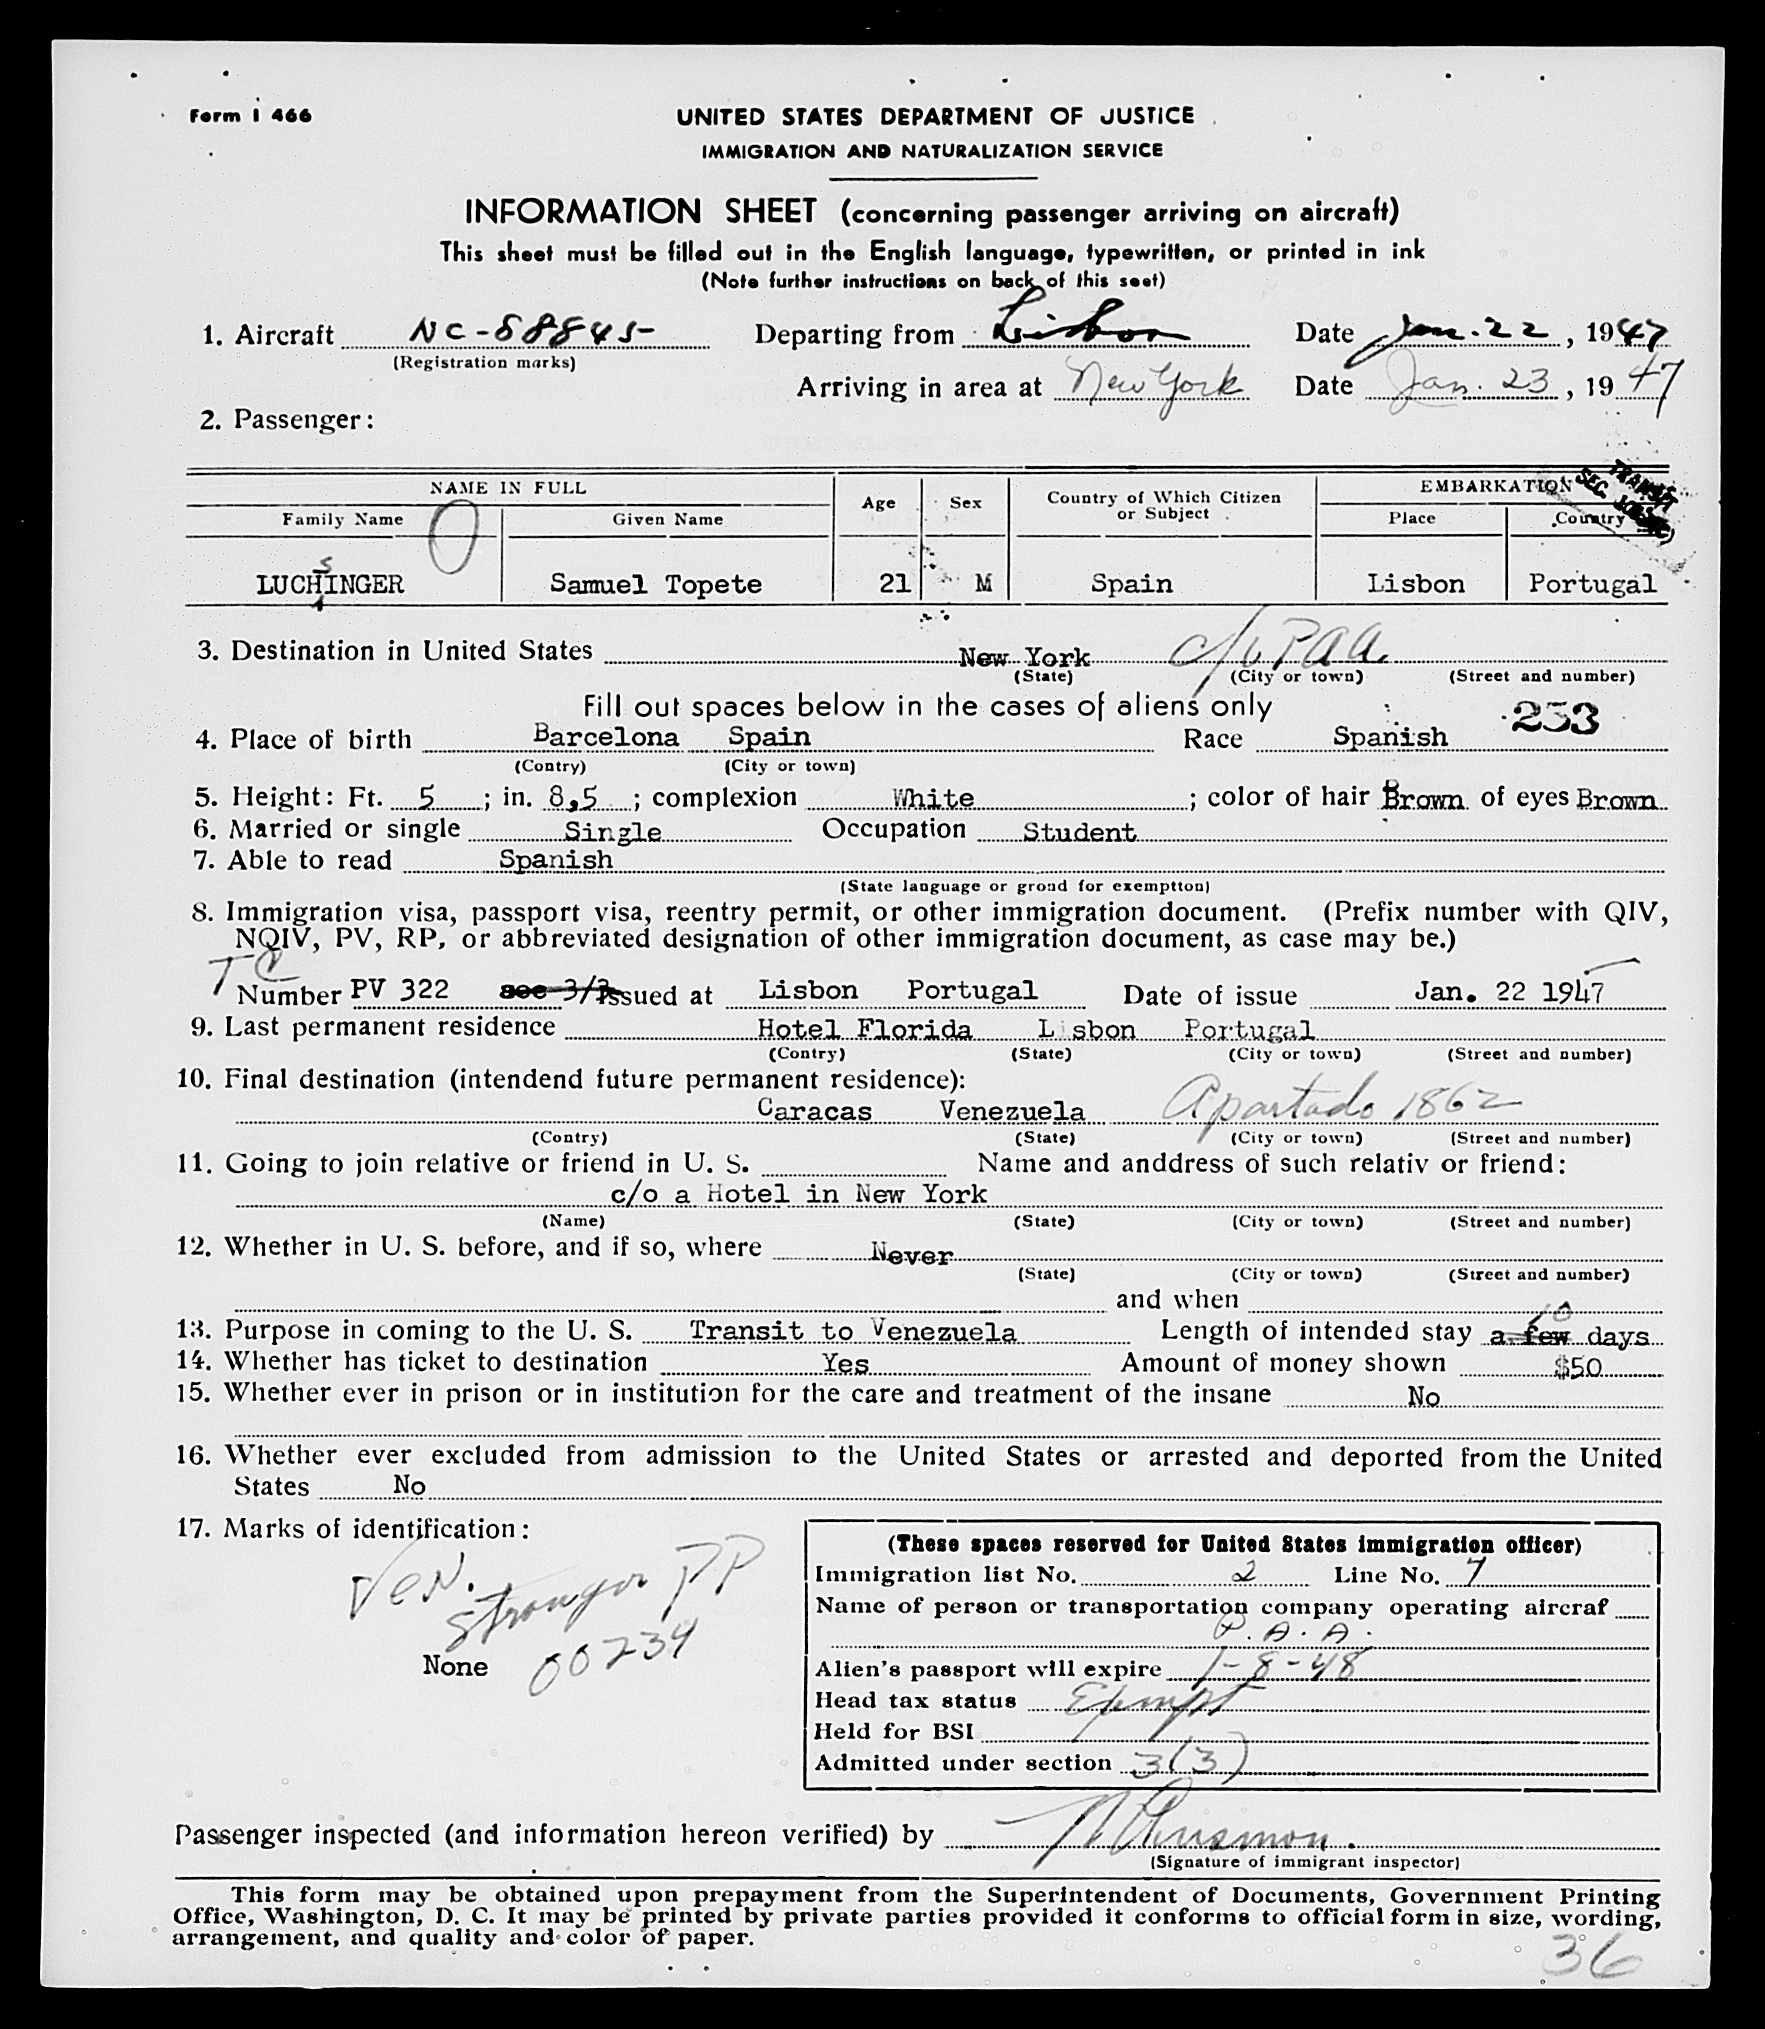 Form I 466
UNITED STATES DEPARTMENT OF JUSTICE
IMMIGRATION AND NATURALIZATION SERVICE
INFORMATION SHEET (concerning passenger arriving on aircraft)
This sheet must be filled out in the English language, typewritten, or printed in ink
(Note further instructions on back of this seet)
1. Aircraft NC-88845 Departing from Lisbon Date Jan. 22, 1947
(Registration marks)
Arriving in area at New York Date Jan. 23, 1947
2. Passenger:
TRANSIT
SEC.
NAME IN FULL Age Sex Country of Which Citizen or Subject EMBARKATION
Family Name Given Name Place Country
s
LUCHINGER Samuel Topete 21 M Spain Lisbon Portugal
3. Destination in United States New York c/o PAA.
(State) (City or town) (Street and number)
Fill out spaces below in the cases of aliens only
253
4. Place of birth Barcelona Spain Race Spanish
(Contry) (City or town)
5. Height: Ft. 5; in. 8,5; complexion White; color of hair Brown of eyes Brown
6. Married or single Single Occupation Student
7. Able to read Spanish
(State language or groud for exemptton)
8. Immigration visa, passport visa, reentry permit, or other immigration document. (Prefix number with QIV,
NQIV, PV, RP, or abbreviated designation of other immigration document, as case may be.)
TC
Number PV 322 sec 3/3 Issued at Lisbon Portugal Date of issue Jan. 22 1947
9. Last permanent residence Hotel Florida Lisbon Portugal
(Contry) (State) (City or town) (Street and number)
10. Final destination (intendend future permanent residence):
Caracas Venezuela Apartado 1862
(Contry) (State) (City or town) (Street and number)
11. Going to join relative or friend in U. S. Name and anddress of such relativ or friend:
c/o a Hotel in New York
(Name) (State) (City or town) (Street and number)
12. Whether in U. S. before, and if so, where Never
(State) (City or town) (Street and number)
and when
10
13. Purpose in coming to the U. S. Transit to Venezuela Length of intended stay a few days
14. Whether has ticket to destination Yes Amount of money shown $50
15. Whether ever in prison or in institution for the care and treatment of the insane No
16. Whether ever excluded from admission to the United States or arrested and deported from the United
States No
17. Marks of identification:
Ven.
Stranger PP
None 00234
(These spaces reserved for United States immigration officer)
Immigration list No. 2 Line No. 7
Name of person or transportation company operating aircraf
P.A.A.
Alien's passport will expire 1-8-48
Head tax status Exempt
Held for BSI
Admitted under section 3(3)
Passenger inspected (and information hereon verified) by
(Signature of immigrant inspector)
This form may be obtained upon prepayment from the Superintendent of Documents, Government Printing
Office, Washington, D. C. It may be printed by private parties provided it conforms to official form in size, wording,
arrangement, and quality and color of paper.
36